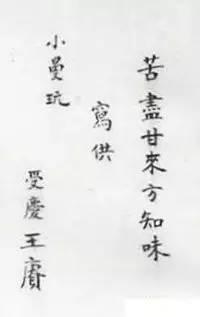 苦盡甘來方知味
寫供
小曼玩
受慶王賡